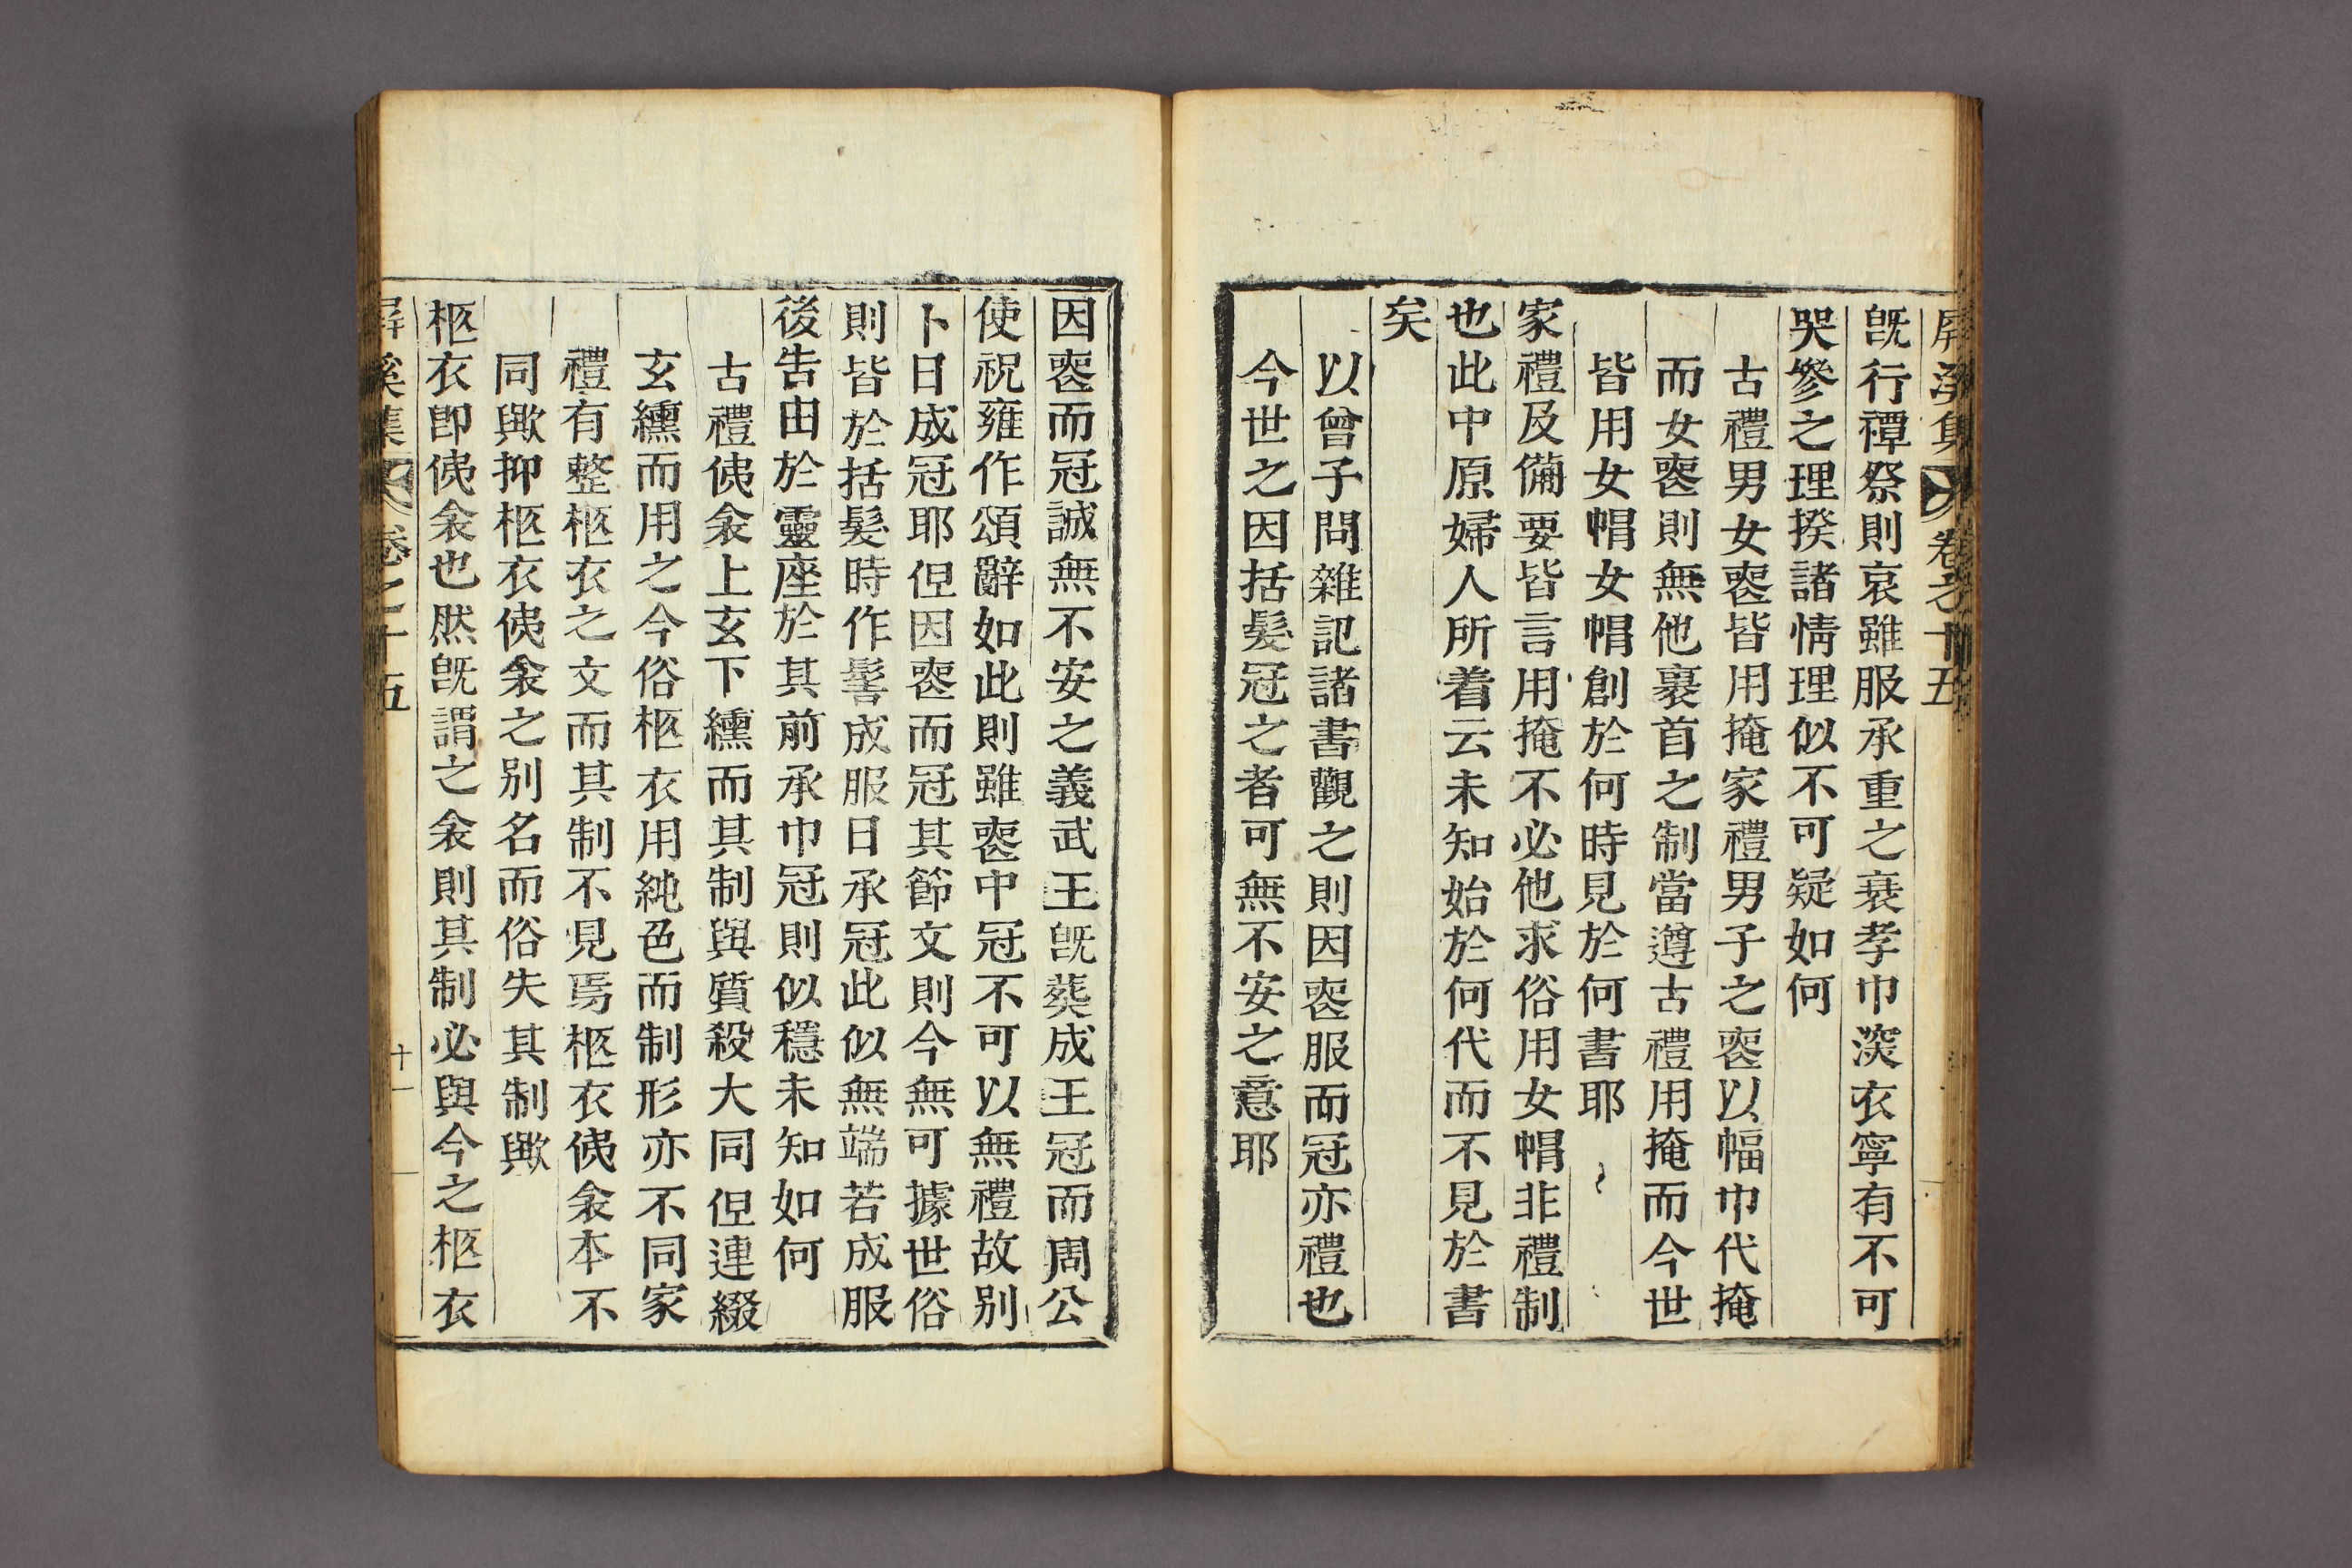 屛溪集 卷之十五
旣行禫祭則哀雖服承重之衰孝巾深衣寧有不可
哭參之理揆諸情理似不可疑如何
古禮男女喪皆用掩家禮男子之喪以幅巾代掩
而女喪則無他裹首之制當遵古禮用掩而今世
皆用女帽女帽創於何時見於何書耶
家禮及備要皆言用掩不必他求俗用女帽非禮制
也此中原婦人所着云未知始於何代而不見於書
矣
以曾子問雜記諸書觀之則因喪服而冠亦禮也
今世之因括髮冠之者可無不安之意耶
因喪而冠誠無不安之義武王旣葬成王冠而周公
使祝雍作頌辭如此則雖喪中冠不可以無禮故別
卜日成冠耶但因喪而冠其節文則今無可據世俗
則皆於括髮時作髻成服日承冠此似無端若成服
後告由於靈座於其前承巾冠則似穩未知如何
古禮侇衾上玄下纁而其制與質殺大同但連綴
玄纁而用之今俗柩衣用純色而制形亦不同家
禮有整柩衣之文而其制不見焉柩衣侇衾本不
同歟抑柩衣侇衾之別名而俗失其制歟
柩衣卽侇衾也然旣謂之衾則其制必與今之柩衣
屛溪集 卷之十五 十一